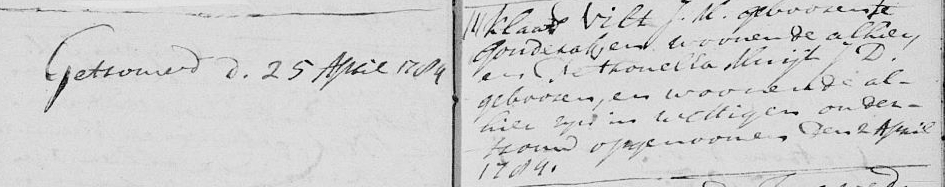 Getrouwd d. 25 April 1784
Klaas Vilt J. M. gebooren te
Gouderak, en woonende alhier,
en Petronella Muijt J D.
gebooren, en woonende al-
hier zyn in wettigen onder-
trouw opgenoomen den 2 April
1784.